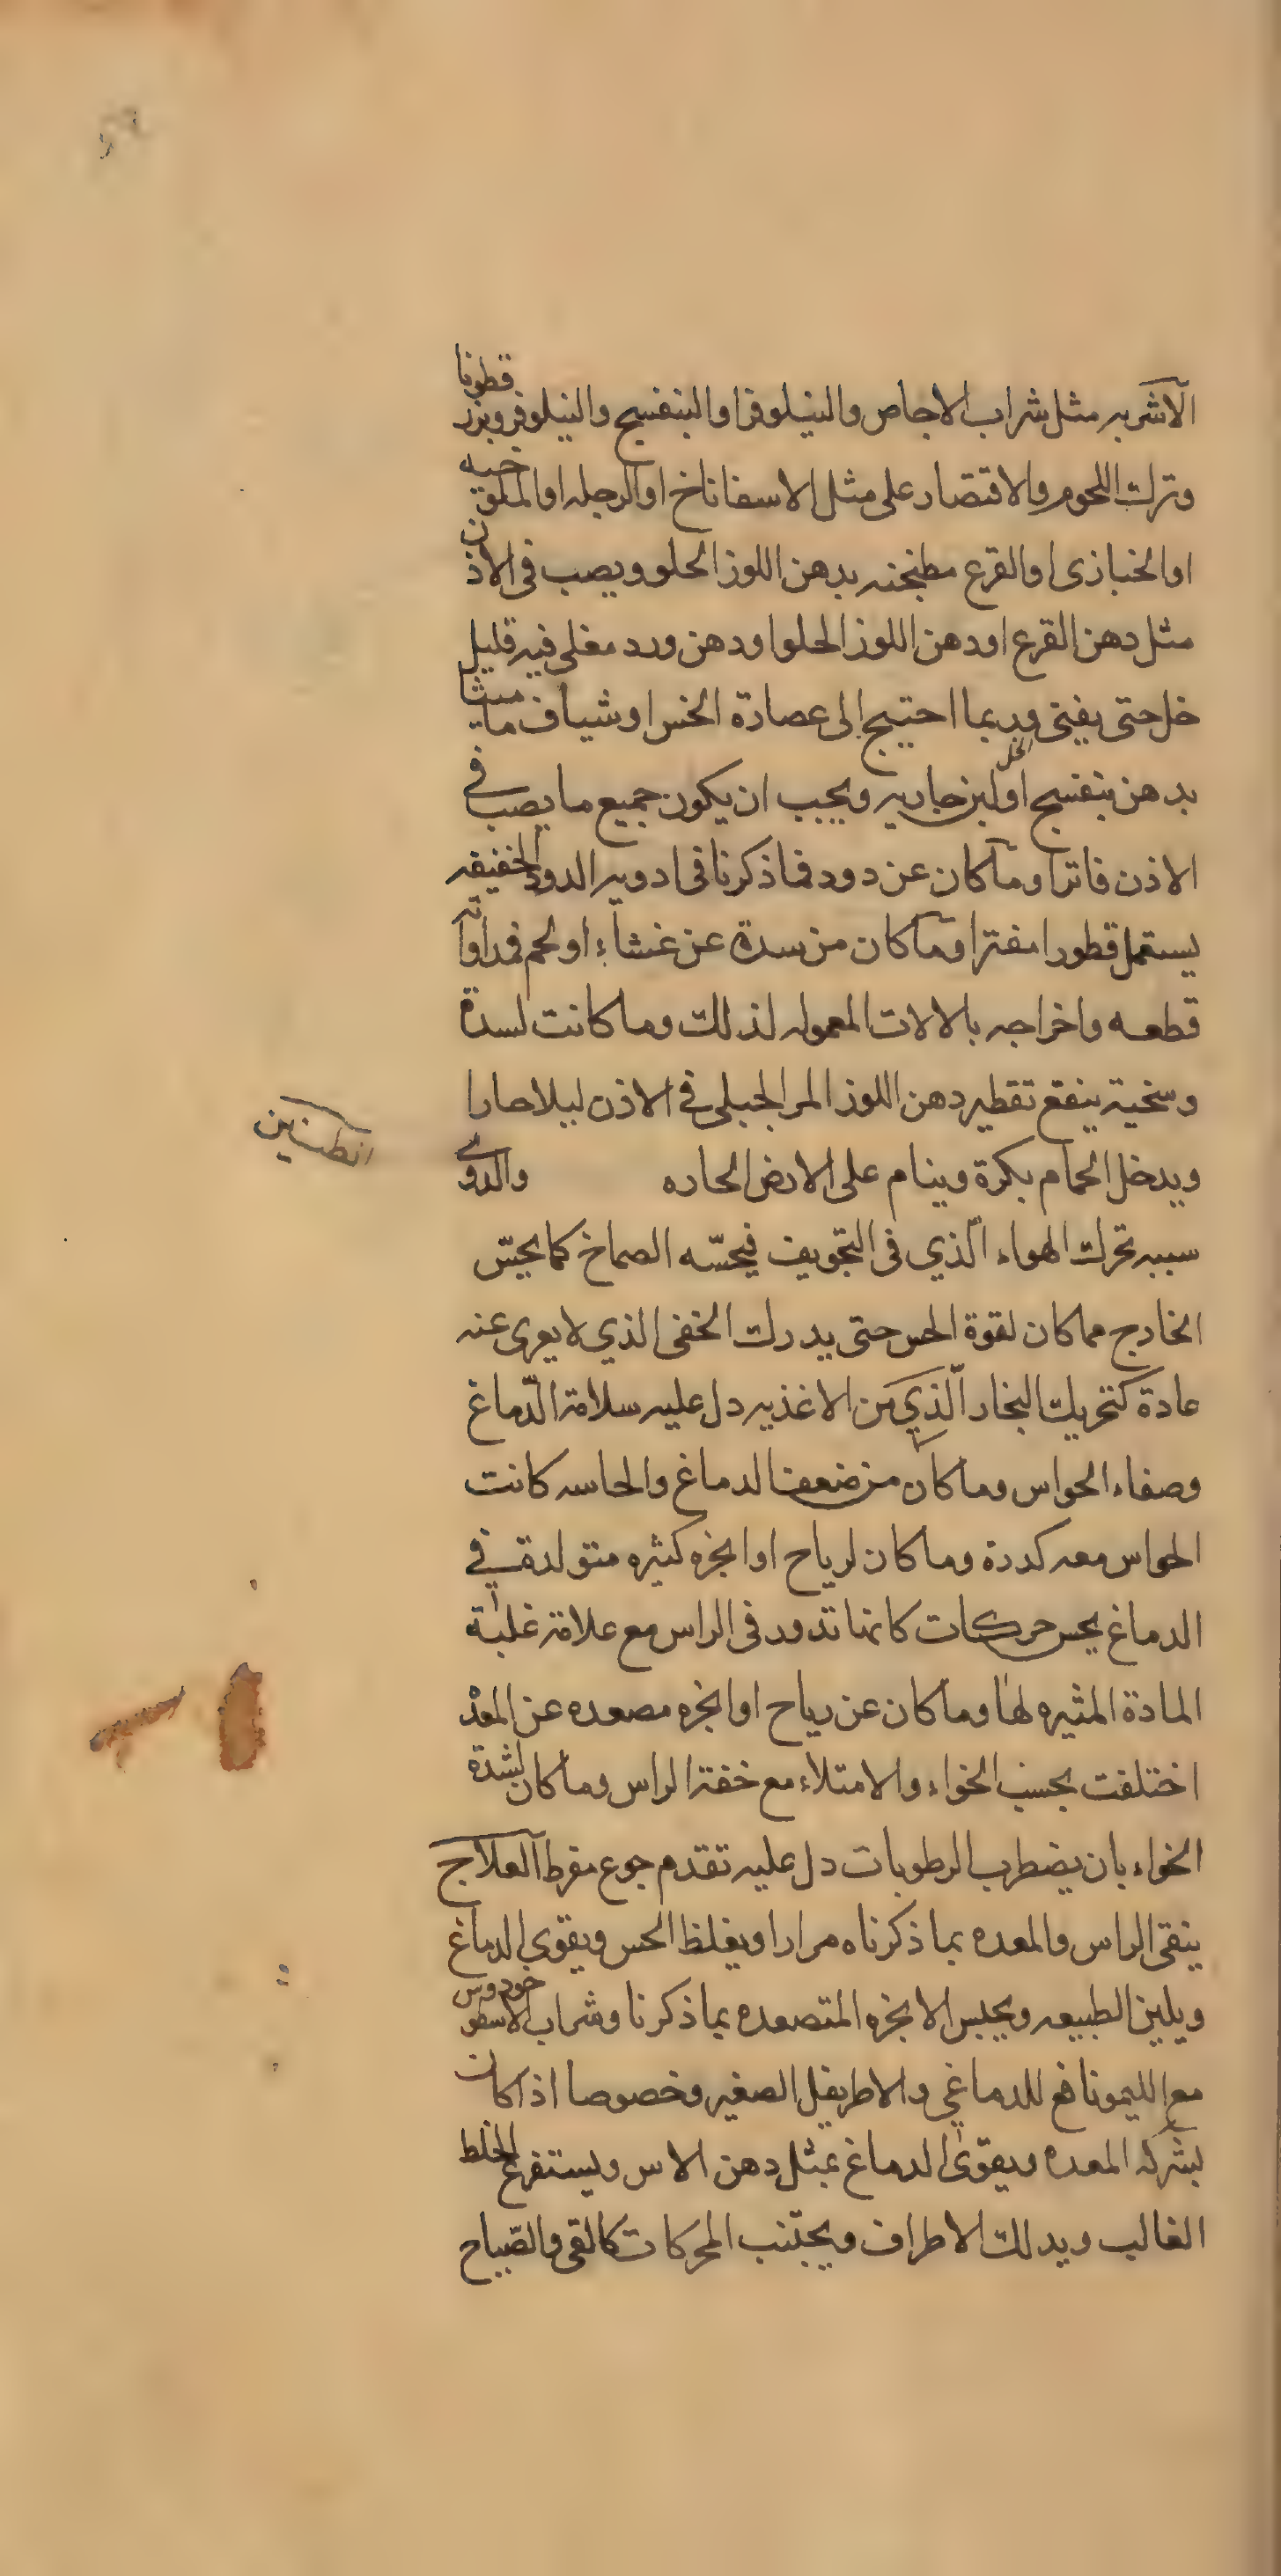 الاشربه مثل شراب الاجاص والنيلوفر او البنفسج والنيلوفر وبزر قطونا
وترك اللحوم والاقتصار على مثل الاسفاناخ او الرجله او الملوخيه
او الخبازى او القرع مطبخنه بدهن اللوز الحلو ويصب فى الاذن
مثل دهن القرع او دهن اللوز الحلو او دهن ورد مغلى فيه قليل
خل حتى يفنى الخل وربما احتيج الى عصارة الخس او شياف ماميثا
بدهن بنفسج او لبن جاريه ويجب ان يكون جميع ما يصب فى
الاذن فاترا وما كان عن دود فما ذكرنا فى ادويه الدود الخفيفه
يستعمل قطورا مفترا وما كان من سدة عن غشاء او لحم فمداواته
قطعه واخراجه بالالات المعموله لذلك وما كانت لسدة
وسخية ينفع تقطير دهن اللوز المر الجبلى فى الاذن ليلا حارا
ويدخل الحمام بكرة وينام على الارض الحاره والدوى
الطنين
سببه تحرك الهواء الّذي فى التجويف فيحسّه الصماخ كما يحسّ
الخارج مما كان لقوة الحس حتى يدرك الخفى الذي لا يعرى عنه
عادة كتحريك البخار الّذي من الاغذيه دل عليه سلامة الدّماغ
وصفاء الحواس وما كان من ضعف الدماغ والحاسه كانت
الحواس معه كدرة وما كان لرياح او ابخره كثيره متولدة فى
الدماغ يحس حركات كانها تدور فى الراس مع علامة غلبة
المادة المثيره لها وما كان عن رياح او ابخره مصعده عن المعدة
اختلفت بحسب الخواء والامتلاء مع خفة الراس وما كان لشدة
الخواء بان يضطرب الرطوبات دل عليه تقدم جوع مفرط العلاج
ينقى الراس والمعده بما ذكرناه مرارا ويغلظ الحس ويقوى الدماغ
ويلين الطبيعه ويحبس الابخره المتصعده بما ذكرنا وشراب الاسطوخودوس
مع الليمو نافع للدماغي والاطريفل الصغير وخصوصا اذا كان
بشركه المعده ويقوى الدماغ بمثل دهن الاس ويستفرغ الخلط
الغالب ويدلك الاطراف ويجتنب المحركات كالقى والصّياح